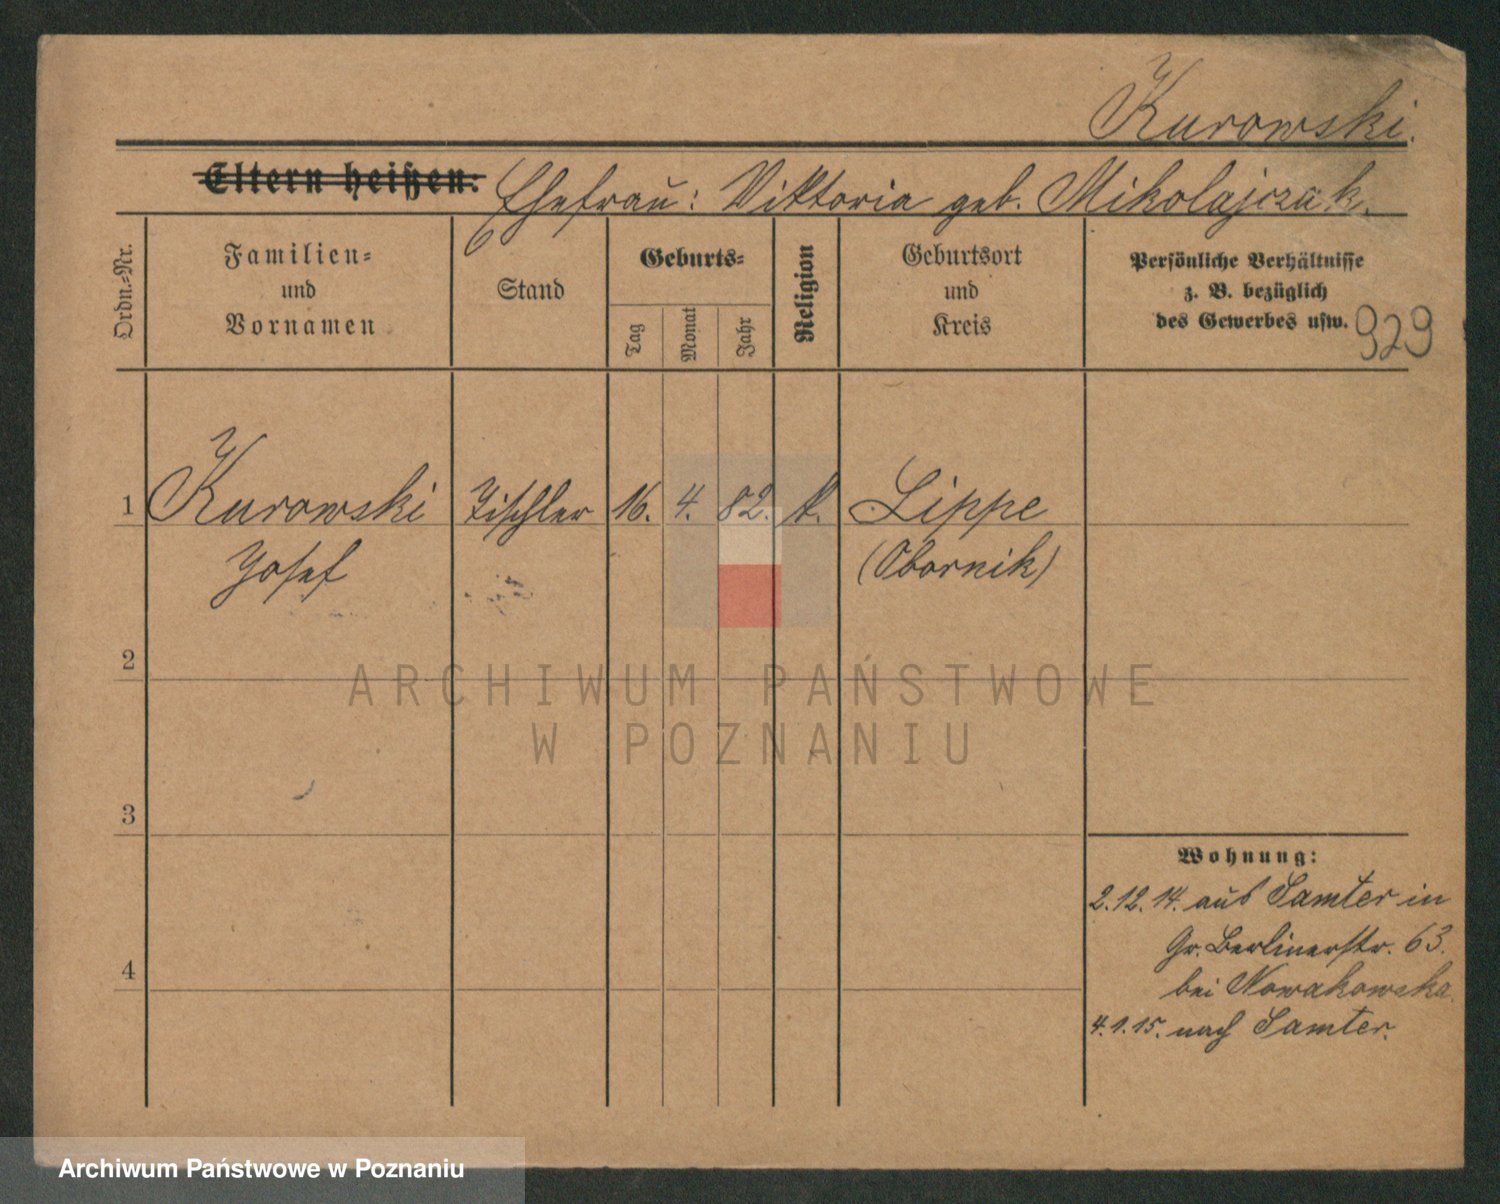 Kurowski.
Eltern heißen: Ehefrau: Viktoria geb. Mikolajczak.
Ordn.-Nr.
Familien-
und
Vornamen
Stand
Geburts-
Tag
Monat
Jahr
Religion
Geburtsort
und
Kreis
Persönliche Verhältnisse
z. B. bezüglich
des Gewerbes usw.
929
1 Kurowski Tischler 16. 4. 82. k. Lippe
Josef (Obornik)
2
ARCHIWUM PAŃSTWOWE
W POZNANIU
3
Wohnung:
2.12.14. aus Samter in
Gr. Berlinerstr. 63.
bei Nowakowska
4
4.1.15. nach Samter.
Archiwum Państwowe w Poznaniu